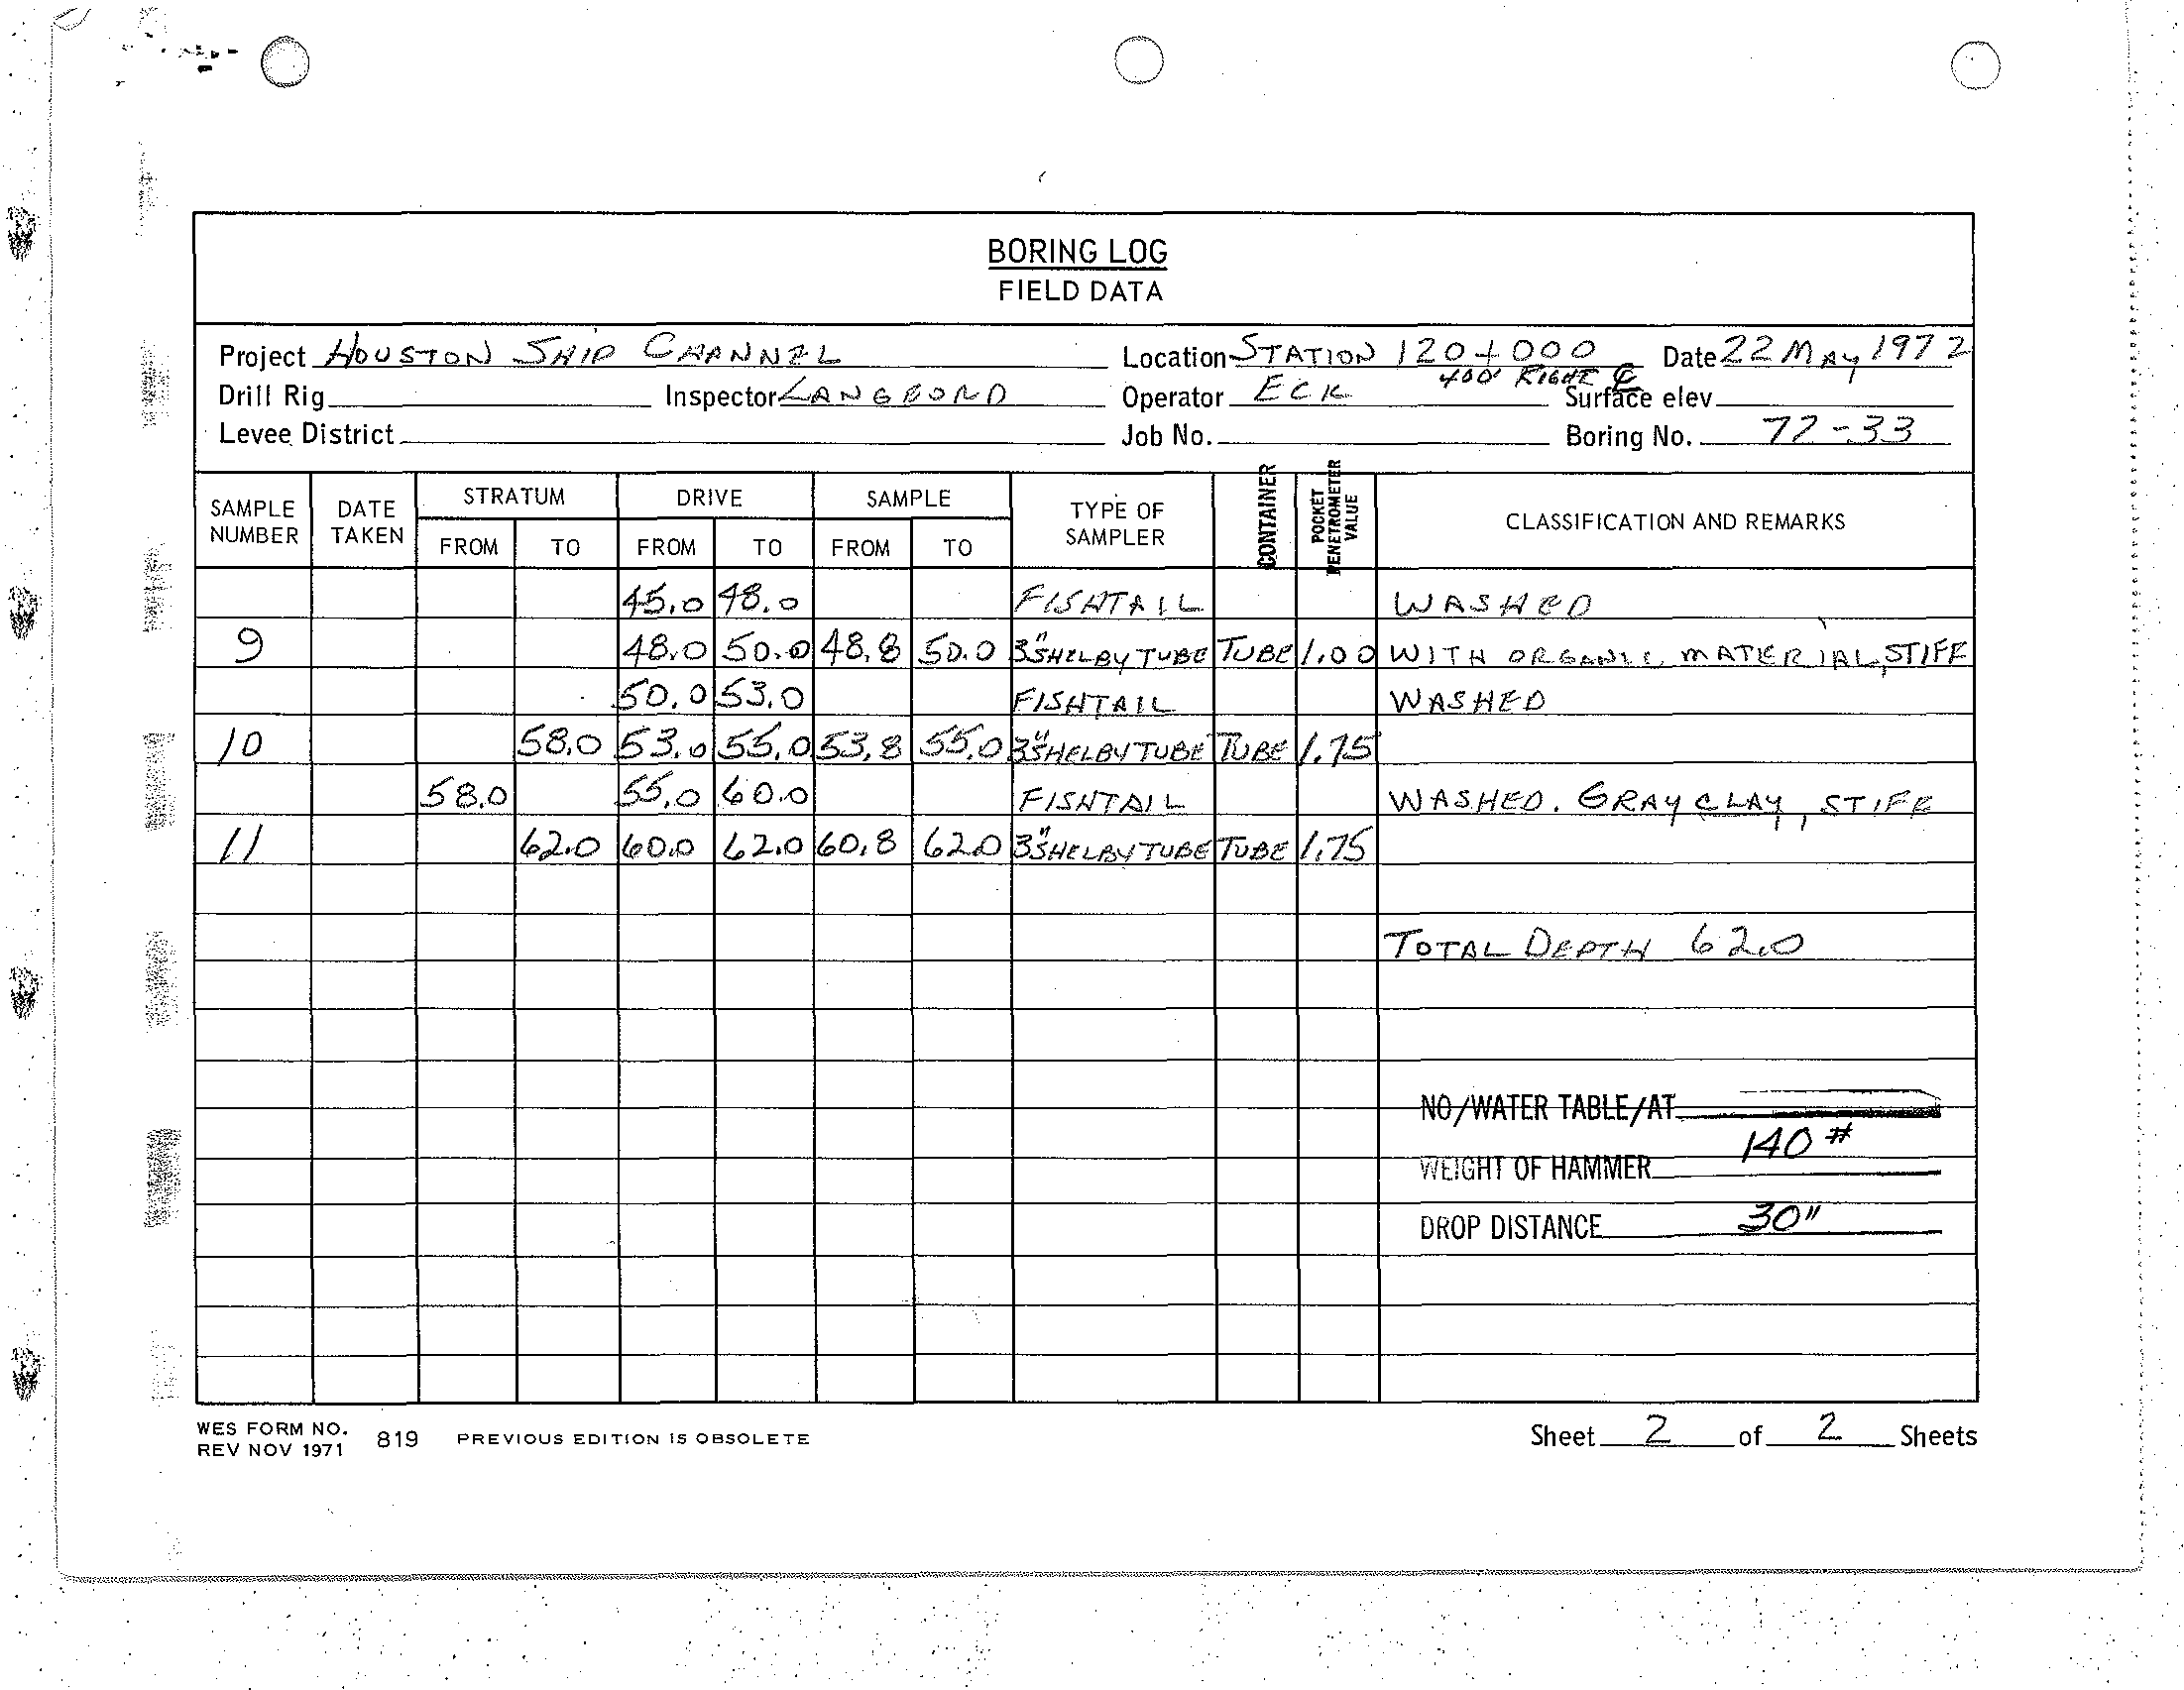 BORING LOG
FIELD DATA
Project HOUSTON SHIP CHANNEL Location STATION 120+000 Date 22 MAY 1972
400' RIGHT ℄
Drill Rig Inspector LANGFORD Operator ECK Surface elev.
Levee District Job No. Boring No. 72-33
SAMPLE NUMBER DATE TAKEN STRATUM DRIVE SAMPLE TYPE OF SAMPLER CONTAINER POCKET PENETROMETER VALUE CLASSIFICATION AND REMARKS
FROM TO FROM TO FROM TO
45.0 48.0 FISHTAIL WASHED
9 48.0 50.0 48.8 50.0 3" SHELBY TUBE TUBE 1.00 WITH ORGANIC MATERIAL, STIFF
50.0 53.0 FISHTAIL WASHED
10 58.0 53.0 55.0 53.8 55.0 3" SHELBY TUBE TUBE 1.75
58.0 55.0 60.0 FISHTAIL WASHED. GRAY CLAY, STIFF
11 62.0 60.0 62.0 60.8 62.0 3" SHELBY TUBE TUBE 1.75
TOTAL DEPTH 62.0
NO/WATER TABLE/AT
WEIGHT OF HAMMER 140#
DROP DISTANCE 30"
WES FORM NO. 819 PREVIOUS EDITION IS OBSOLETE Sheet 2 of 2 Sheets
REV NOV 1971